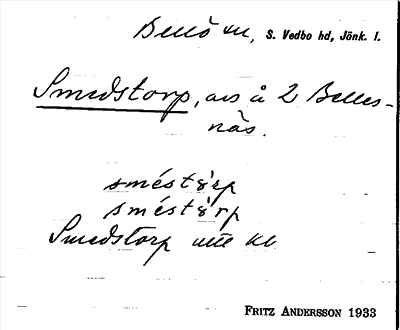 Bellö sn, S. Vedbo hd, Jönk. l.
Smedstorp, avs å 2 Belles-
näs.
sméstòrp
sméstòrp
Smedstorp utt kl
FRITZ ANDERSSON 1933